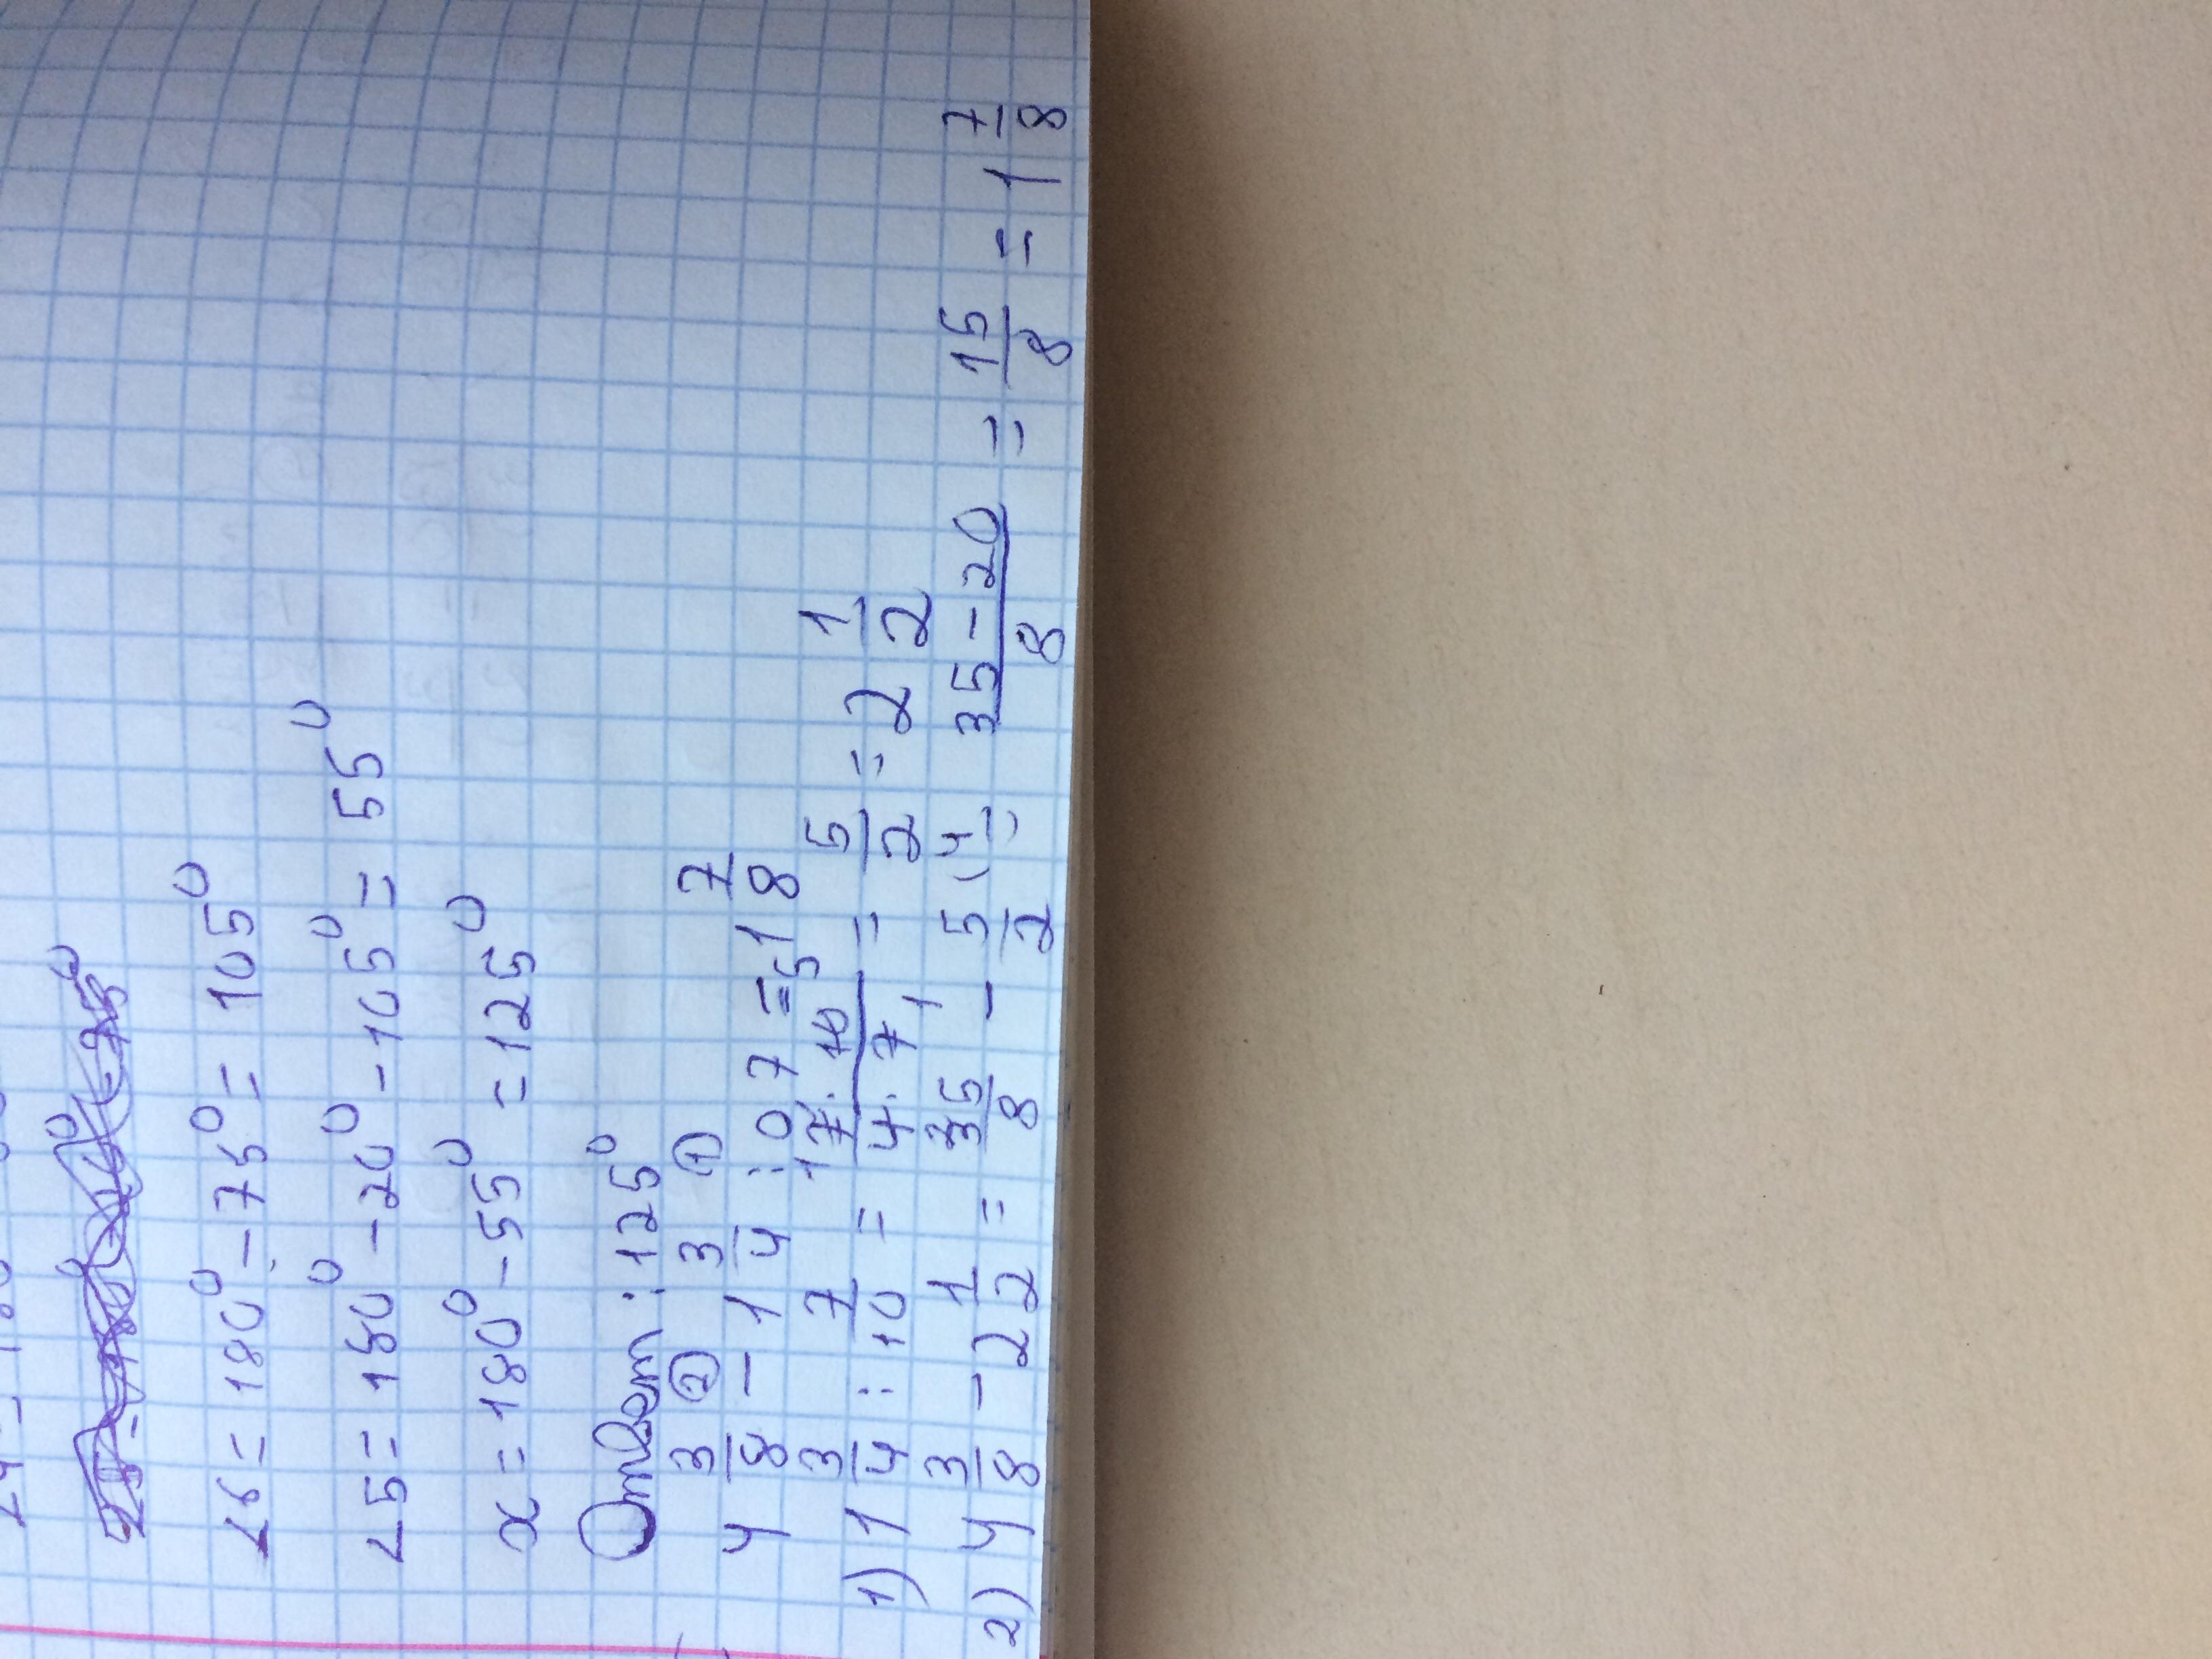 ∠6 = 180⁰ - 75⁰ = 105⁰
∠5 = 180⁰ - 20⁰ - 105⁰ = 55⁰
x = 180⁰ - 55⁰ = 125⁰
Ответ: 125⁰
4 3/8 -② 1 3/4 :① 0,7 = 1 7/8
1) 1 3/4 : 7/10 = 7·10/4·7 = 5/2 = 2 1/2
2) 4 3/8 - 2 1/2 = 35/8 - 5/2 (4 = 35-20/8 = 15/8 = 1 7/8